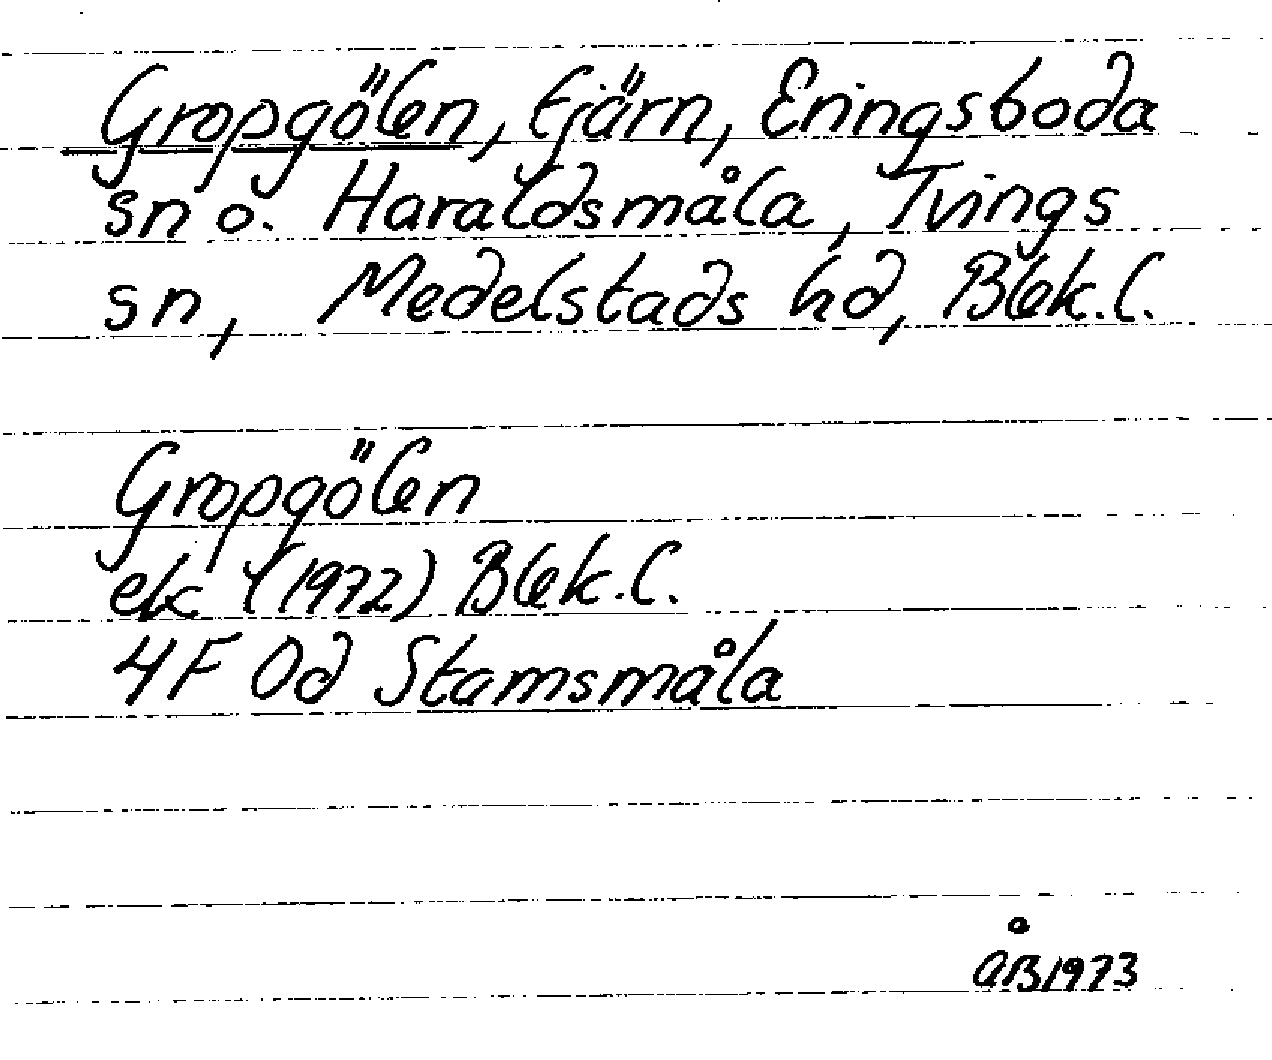 Gropgölen, tjärn, Eringsboda
sn o. Haraldsmåla, Tvings
sn, Medelstads hd, Blek.l.
Gropgölen
ek (1972) Blek.l.
4F 0d Stamsmåla
ÅB 1973